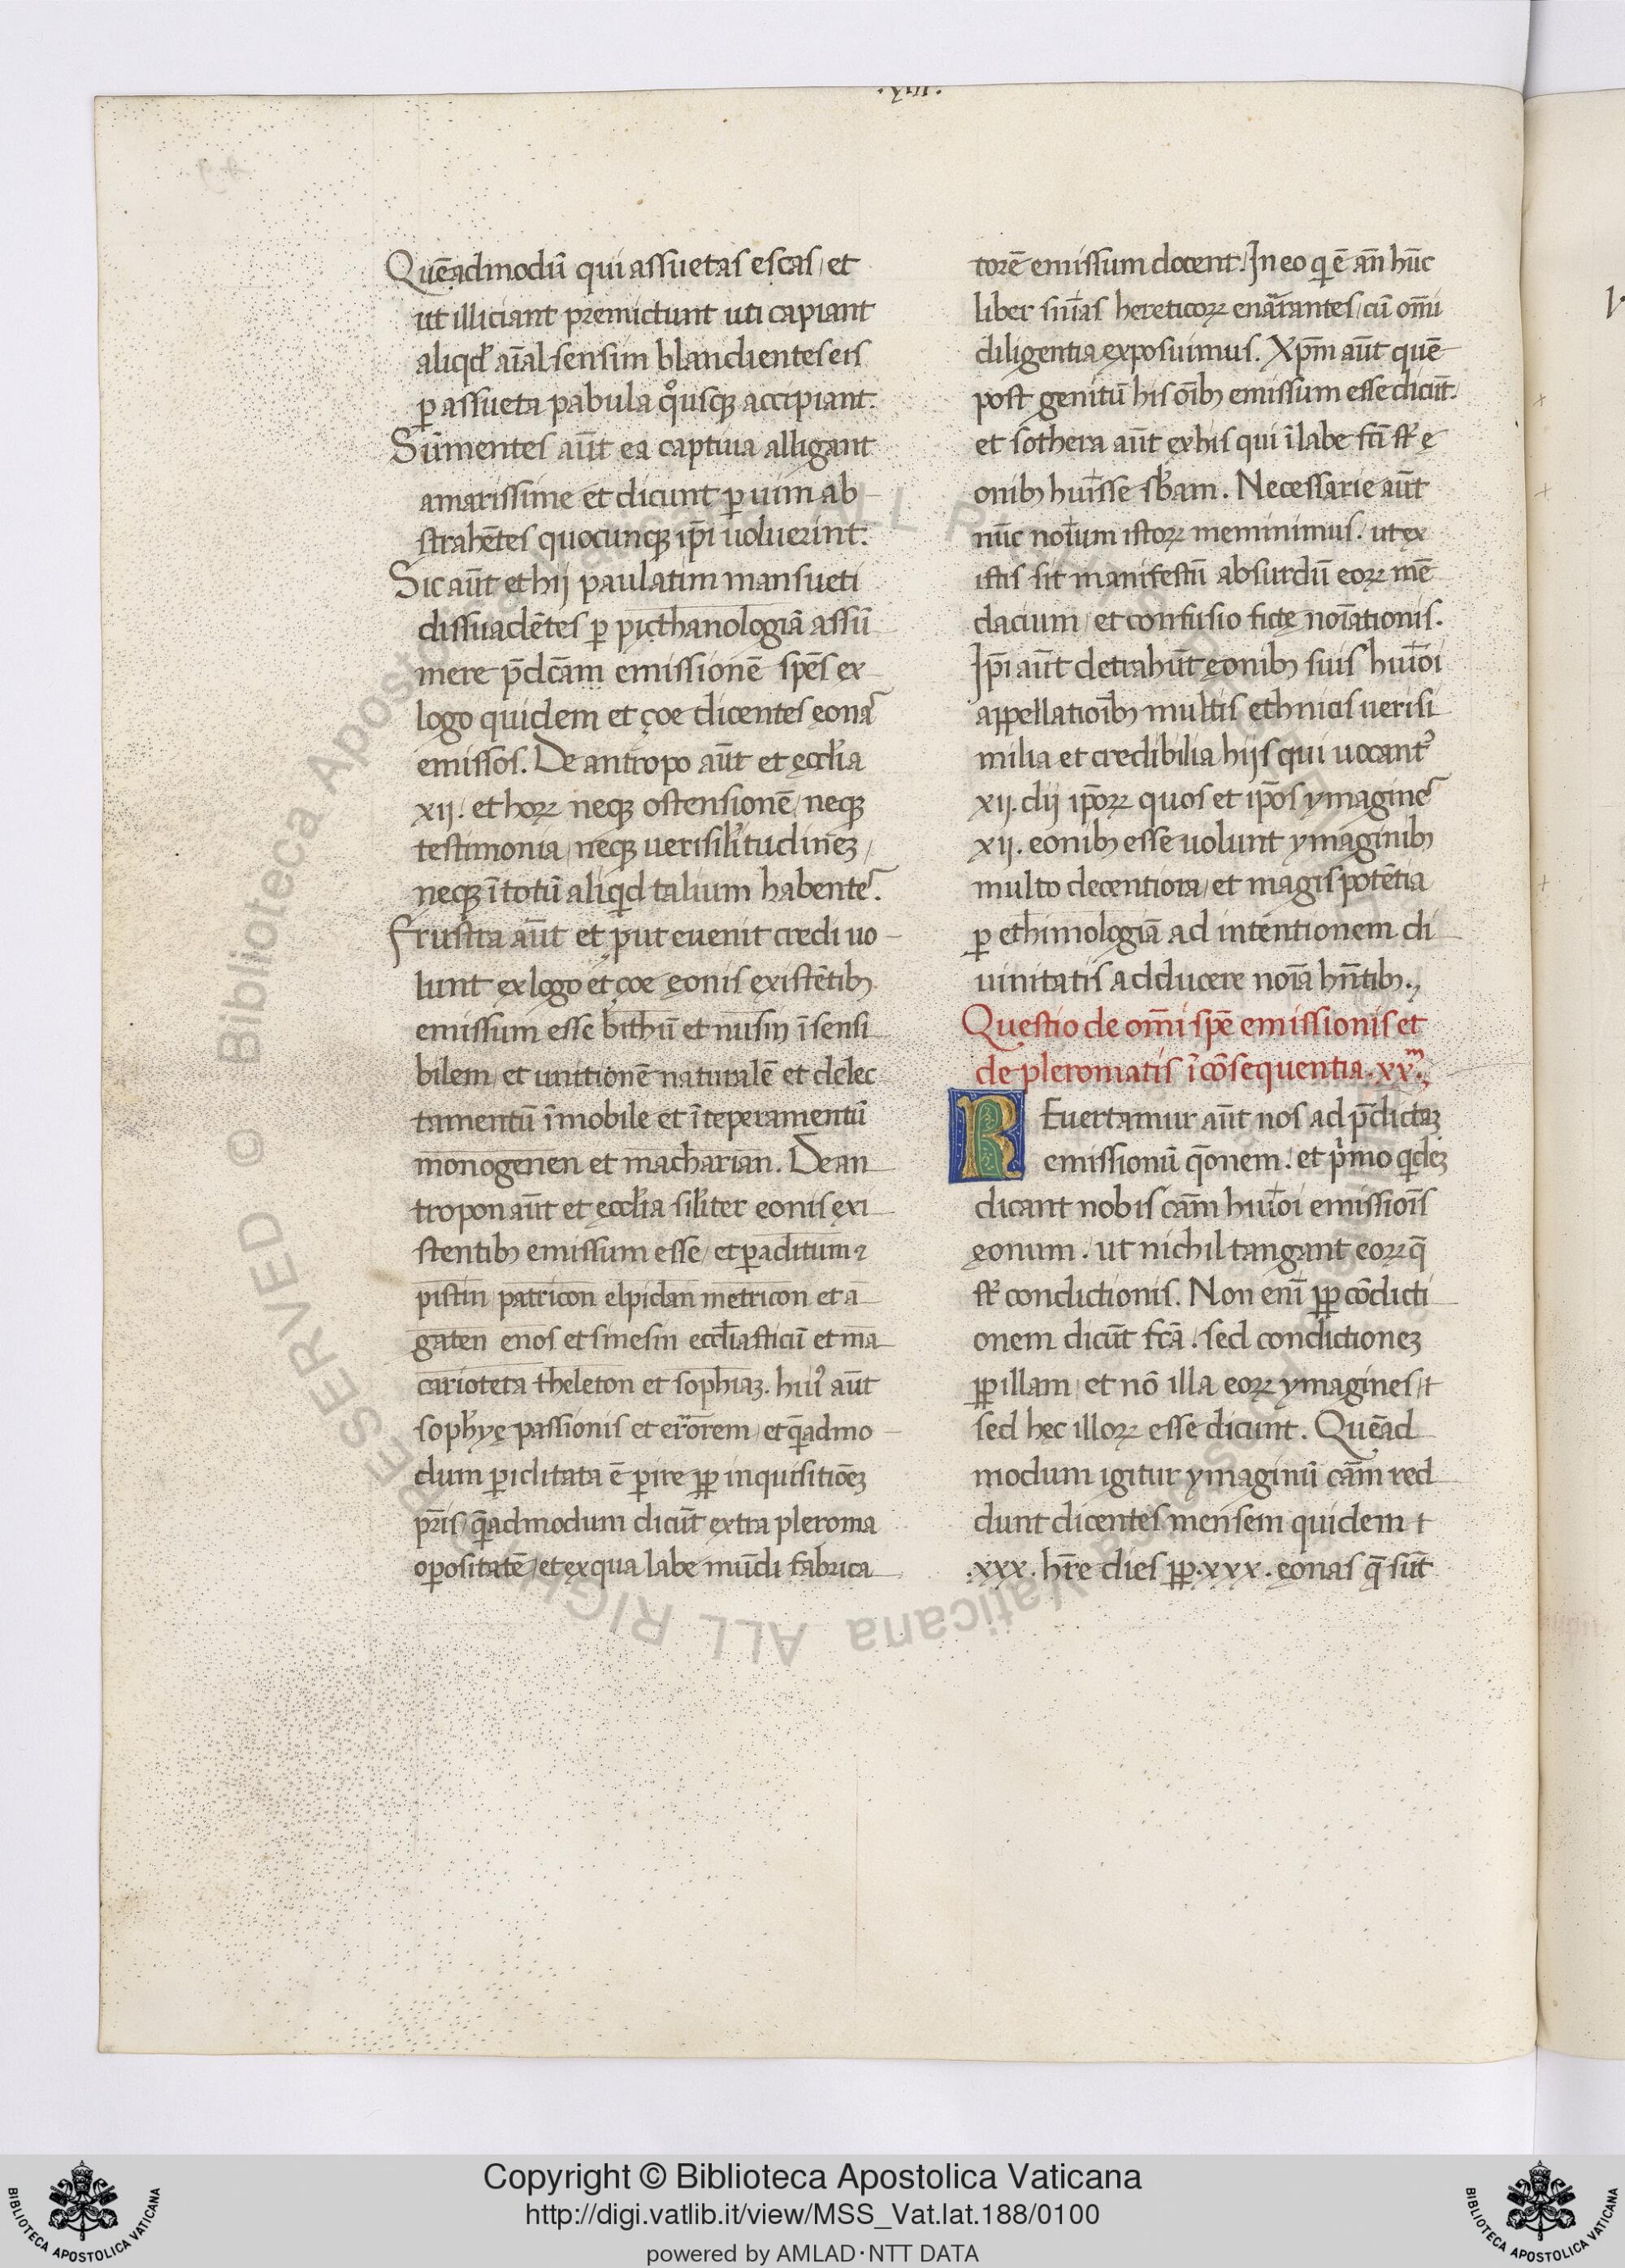 .xiii.
Quēadmodū qui assuetas escas/et
ut illiciant premictunt uti capiant
aliqd̛ aīal sensim blandientes eis
ꝑ assueta pabula qͦusqꝫ accipiant.
Sūmentes aūt ea captiua alligant
amarissime et dicunt ꝑ uim ab-
strahētes quocunqꝫ ip̄i uoluerint.
Sic aūt et hij paulatim mansueti
dissuadētes ꝑ picthanologiā assū
mere p̄dc̄am emissionē sp̄es ex-
logo quidem et çoe dicentes ęonas
emissos. De antropo aūt et ęccl̄ia
xij. et hoꝝ neqꝫ ostensionē/neqꝫ
testimonia/neqꝫ uerisil̄itudineꝫ/
neqꝫ ī totū aliqid talium habentes.
Frustra aūt et put euenit credi uo-
lunt ex logo et çoe ęonis existētibꝫ
emissum esse bithū et nusin ī sensi
bilem/et unitionē naturalē et delec
tamentū īmobile et īteperamentū
monogenen et macharian. De an
tropon aūt et ęccl̄ia sil̄iter eonis exi
stentibꝫ emissum esse/et ꝑaditum ⁊
pistin patricon elpidan metricon et a
gaten enos et sinesin eccl̄iasticū et ma
carioteta theleton et sophiaꝫ. huiꝰ aūt
sophyę passionis et errorem/et qēadmo-
dum ꝑiclitata ē ꝑire ꝓꝑ inquisitiōeꝫ
pr̄is/qēadmodum dicūt extra pleroma
oꝑositatē/et ex qua labe mūdi fabrica
torē emissum docent. In eo qi ē an̄ hūc
liber sn̄ias hereticoꝝ enarrantes/cū om̄i
diligentia exposuimus. Xp̄m aūt quē
post genitū his oībꝫ emissum esse dicūt.
et sothera aūt ex his qui ī labe fc̄i st̄ ę
onibꝫ huisse sb̄am. Necessarie aūt
nūc noīum istoꝝ meminimus. ut ex
istis sit manifestū absurdū eoꝝ mē
dacium/et confusio ficte noīationis.
Ip̄i aūt detrahūt ęonibꝫ suis huīoi
appellatioībꝫ multis ethnicis uerisi
milia et credibilia hijs qui uocantᷣ
xij. dij ip̄oꝝ quos et ip̄os ymagines
xij. eonibꝫ esse uolunt ymaginibꝫ
multo decentiora/et magis potētia
ꝑ ethimologiā ad intentionem di
uinitatis adducere noīa hn̄tibꝫ.,
Questio de om̄i sp̄e emissionis et
de pleromatis īcōsequentia. xxͫ.,
REuertamur aūt nos ad p̄dictaꝫ
emissionū q̄onem. et primo qideꝫ
dicant nobis cām huīoi emissiōis
ęonum. ut nichil tangant eoꝝ q̄
st̄ condictionis. Non enī ꝓꝑ cōdicti
onem dicūt fc̄ā. sed condictioneꝫ
ꝓꝑ illam/et nō illa eoꝝ ymagines/t
sed hęc illoꝝ esse dicunt. Quēad
modum igitur ymaginū cām red
dunt dicentes mensem quidem t
.xxx. hr̄e dies ꝓꝑ .xxx. ęonas q̄ sūt
Copyright © Biblioteca Apostolica Vaticana
http://digi.vatlib.it/view/MSS_Vat.lat.188/0100
powered by AMLAD·NTT DATA